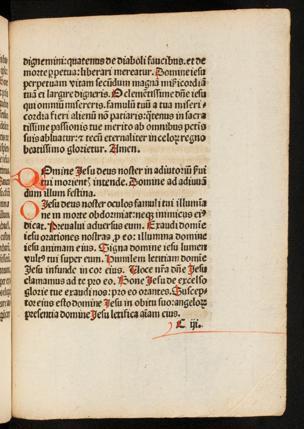 digne mini: quatenus de diaboli faucibus. et de
morte ꝑpetua: liberari mereatur. Domine iesu
perpetuam vitam secūdum magnā misericordiā
tuā ei largire digneris. O clementissime dn̄e iesu
qui omniū misereris. famulū tuū a tua miseri⸗
cordia fieri alienū nō patiaris: q̄tenus in sacra
tissime passionis tue merito ab omnibus pctis
suis abluatur: ⁊ tecū eternaliter in celoꝝ regno
beatissimo glorietur. Amen.
Domine Jesu deus noster in adiutoriū fui
tui morientꝭ intende. Domine ad adiuuā
dum illum festina.
O Jesu deus noster oculos famuli tui illumīa
ne in morte obdormiat: neqꝫ inimicus eiꝰ
dicat. Preualui aduersus eum. Exaudi domīe
iesu orationes nostras ꝓ eo: illumina domine
iesu animam eius. Signa domine iesu lumen
vultꝰ tui super eum. Humilem letitiam domīe
Jesu infunde in cor eius. Voce nr̄a dn̄e Jesu
clamamus ad te pro eo. Bone Jesu de excelso
glorie tue exaudi nos: pro eo orantes. Suscep⸗
tor eius esto domine Jesu in obitu suo: angeloꝝ
presentia domine Jesu letifica aīam eius.
C iij.